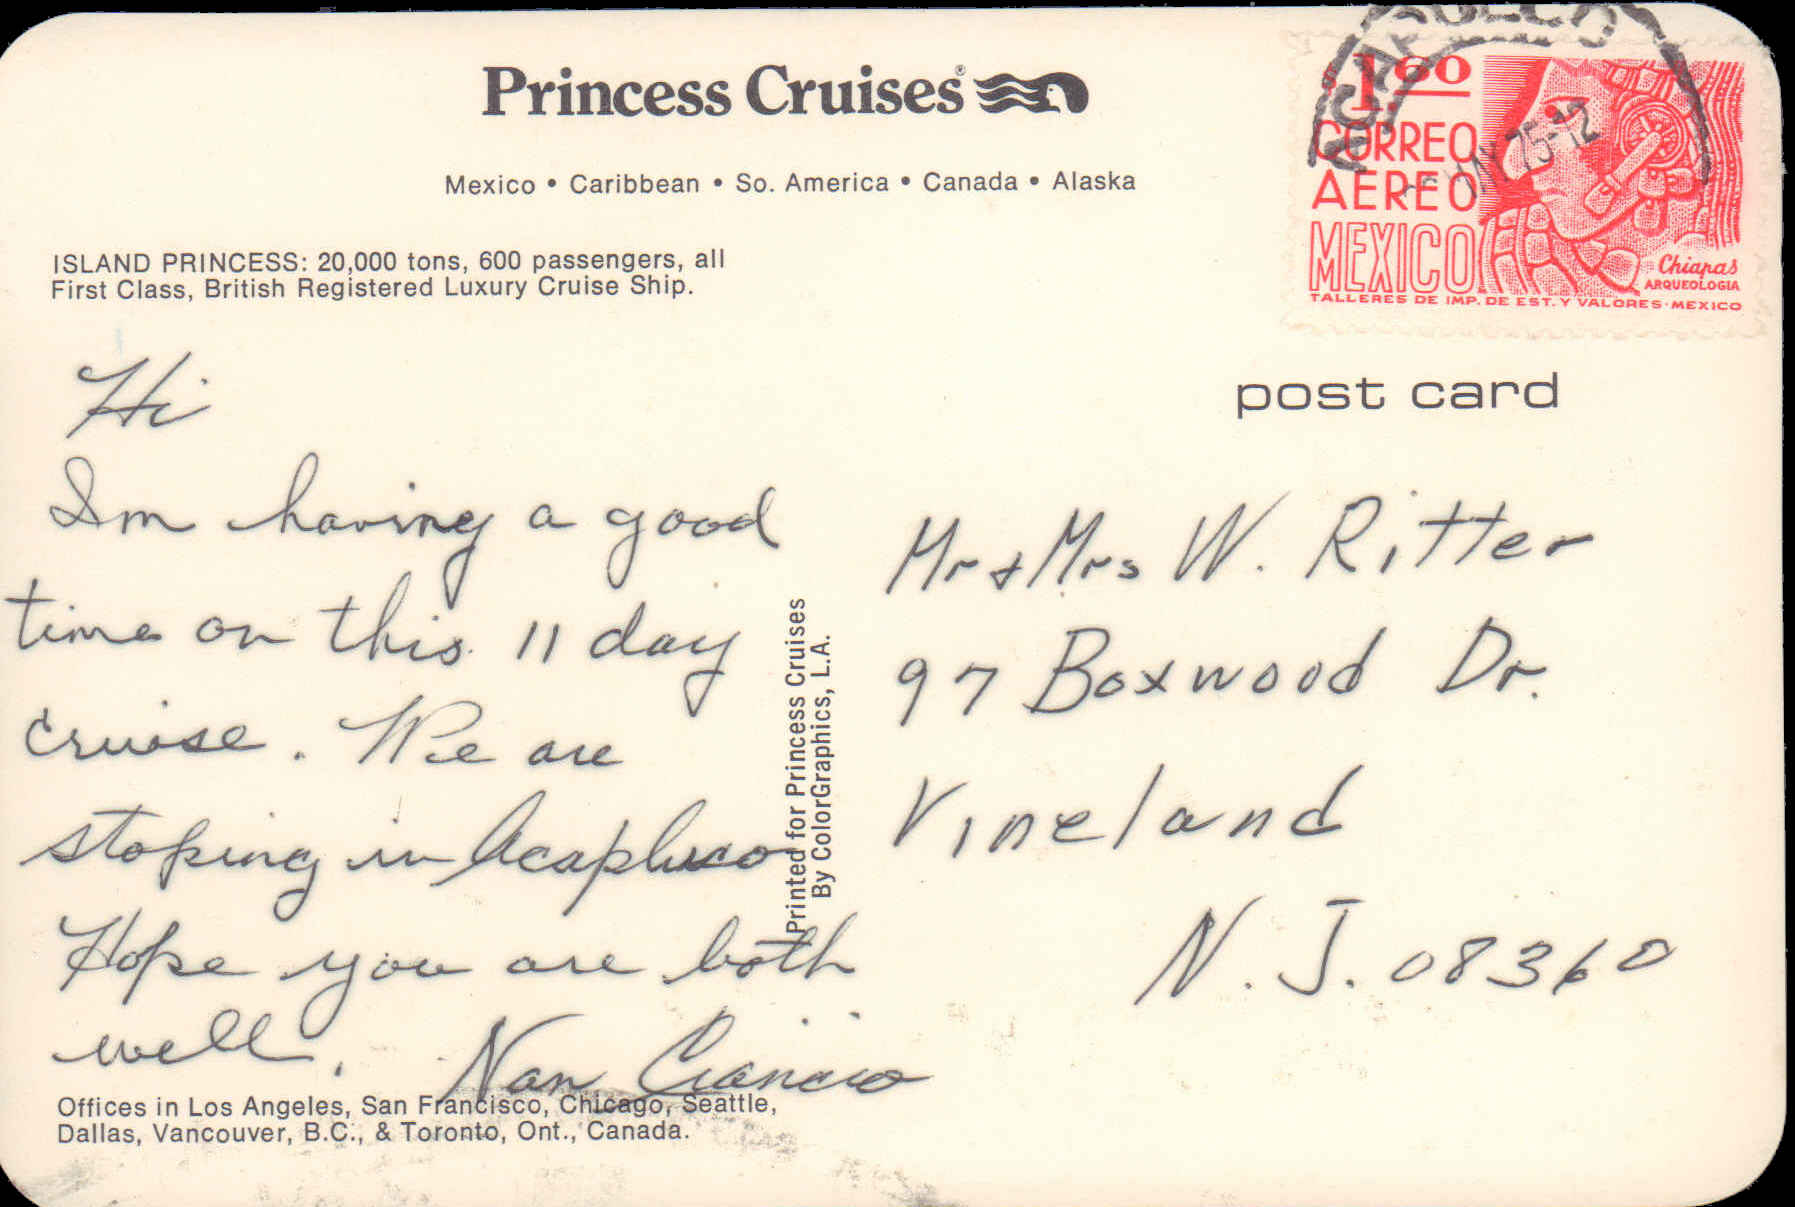 Princess Cruises®
Mexico • Caribbean • So. America • Canada • Alaska
ISLAND PRINCESS: 20,000 tons, 600 passengers, all
First Class, British Registered Luxury Cruise Ship.
ACAPULCO
MAY 75-12
1.60
CORREO
AEREO
MEXICO
Chiapas
ARQUEOLOGIA
TALLERES DE IMP. DE EST. Y VALORES-MEXICO
post card
Hi
Im having a good
time on this 11 day
cruise. We are
stoping in Acapluco
Hope you are both
well. Nan Ciancio
Printed for Princess Cruises
By ColorGraphics, L.A.
Mr & Mrs W. Ritter
97 Boxwood Dr.
Vineland
N.J. 08360
Offices in Los Angeles, San Francisco, Chicago, Seattle,
Dallas, Vancouver, B.C., & Toronto, Ont., Canada.